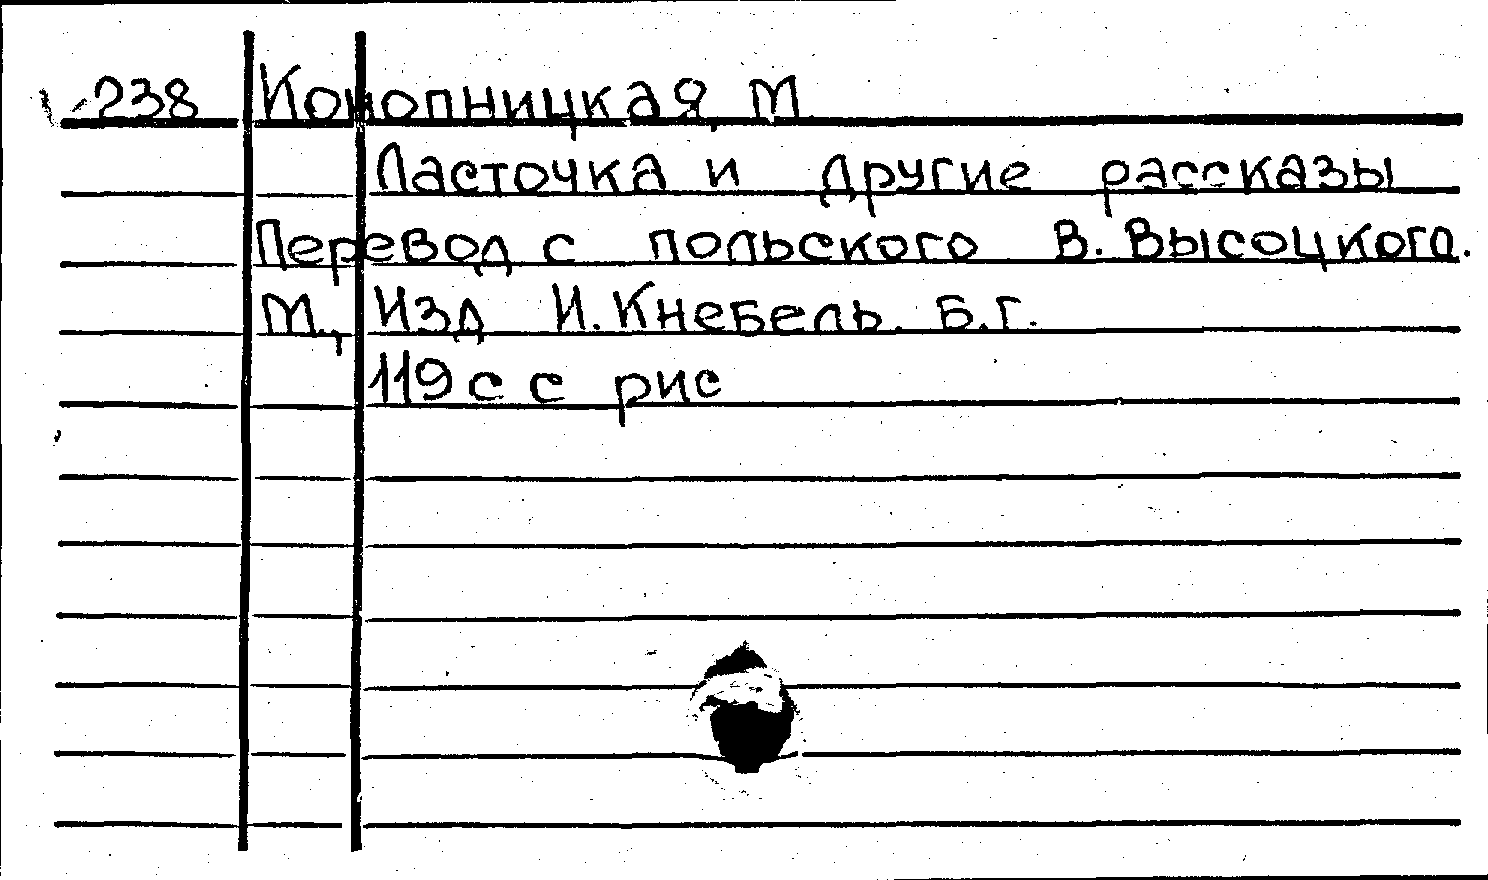 238 Конопницкая, М.
Ласточка и другие рассказы
Перевод с польского В. Высоцкого.
М., Изд И. Кнебель. Б.г.
119 с с рис